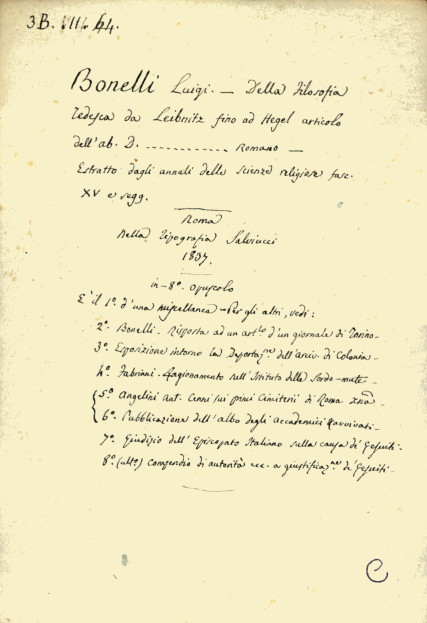 3B. III. 64.
Bonelli Luigi. — Della Filosofia
Tedesca da Leibnitz fino ad Hegel articolo
dell'ab. D. ............ Romano —
Estratto dagli annali delle Scienze religiose fasc.
XV e segg.
Roma
Nella Tipografia Salviucci
1837.
in-8º. opuscolo
E' il 1º. d'una miscellanea — Per gli altri, vedi:
2º. Bonelli - Risposta ad un artlo. d'un giornale di Torino -
3º. Esposizione intorno la Deportazne. dell'arciv. di Colonia -
4º. Fabriani. Ragionamento sull'Istituto delle Sordo-mute -
5º. Angelini Ant. Cenni sui primi Cimiterii di Roma xna.
6º. Pubblicazione dell'albo degli Accademici Ravvivati -
7º. Giudizio dell'Episcopato Italiano sulla causa de' Gesuiti.
8º. (ulto.) compendio di autorità ecc. a giustificazne. de' Gesuiti -
C